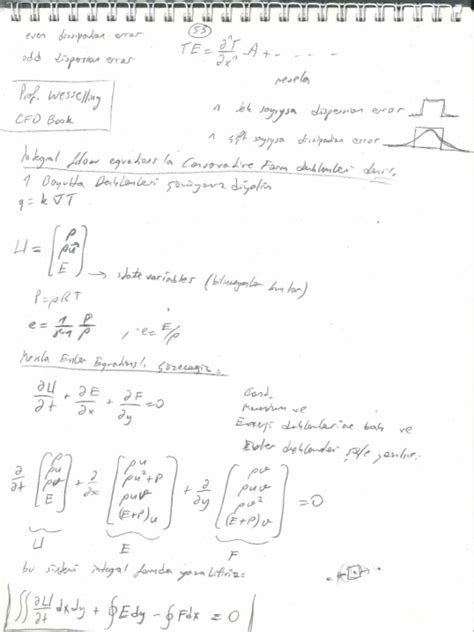 53
even dissipation error
odd dispersion error
TE = ∂ⁿT/∂xⁿ A + - - - -
mesela
n tek sayıysa dispersion error
n çift sayıysa dissipation error
Prof. Wesseling
CFD Book
Integral flow equations'la Conservative Form denklemleri denir.
1 Boyutta Denklemleri çözüyoruz diyelim
q = k ∇T
U = [ρ; ρu⃗; E] → state variables (bilinmeyenler bunlar)
P = ρRT
e = 1/(γ-1) P/ρ , e = E/ρ
Mesela Euler Equations'ı çözeceğiz.
∂U/∂t + ∂E/∂x + ∂F/∂y = 0
Cont.
Momentum ve
Enerji denklemlerine bak ve
Euler denklemleri şöyle yazılır.
∂/∂t [ρ; ρu; ρv; E] + ∂/∂x [ρu; ρu²+P; ρuv; (E+P)u] + ∂/∂y [ρv; ρuv; ρv²; (E+P)v] = 0
U E F
bu sistemi integral formda yazabiliriz:
∬ ∂U/∂t dxdy + ∮ E dy - ∮ F dx = 0